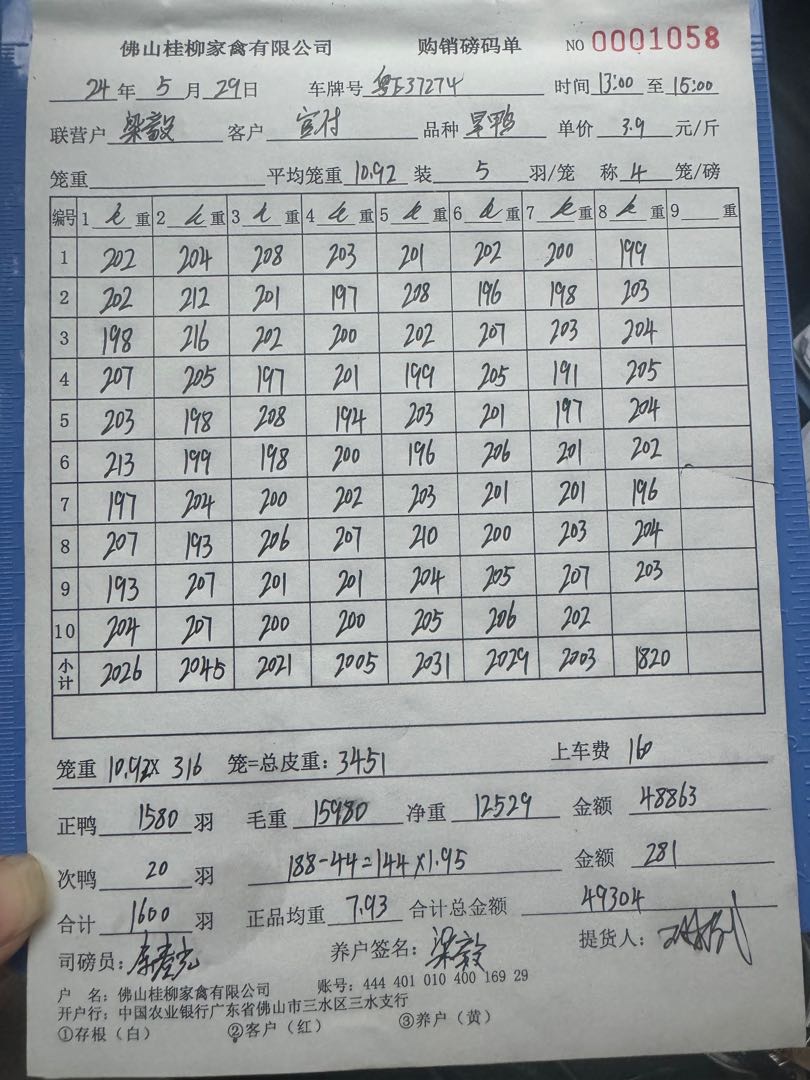 佛山桂柳家禽有限公司 购销磅码单 NO 0001058
24年5月29日 车牌号 粤E37274 时间 13:00 至 15:00
联营户 梁毅 客户 品种 旱鸭 单价 3.9 元/斤
笼重 平均笼重 10.92 装 5 羽/笼 称 4 笼/磅
编号 1 重 2 重 3 重 4 重 5 重 6 重 7 重 8 重 9 重
1 202 204 208 203 201 202 200 199
2 202 212 201 197 208 196 198 203
3 198 216 202 200 202 207 203 204
4 207 205 197 201 199 205 191 205
5 203 198 208 194 203 201 197 204
6 213 199 198 200 196 206 201 202
7 197 204 200 202 203 201 201 196
8 207 193 206 207 210 200 203 204
9 193 207 201 201 204 205 207 203
10 204 207 200 200 205 206 202
小计 2026 2045 2021 2005 2031 2029 2003 1820
笼重 10.92X 316 笼=总皮重: 3451 上车费 160
正鸭 1580 羽 毛重 15980 净重 12529 金额 48863
次鸭 20 羽 188-44=144X1.95 金额 281
合计 1600 羽 正品均重 7.93 合计总金额 49304
司磅员: 养户签名: 梁毅 提货人:
户 名: 佛山桂柳家禽有限公司 账号: 444 401 010 400 169 29
开户行: 中国农业银行广东省佛山市三水区三水支行
①存根(白) ②客户(红) ③养户(黄)